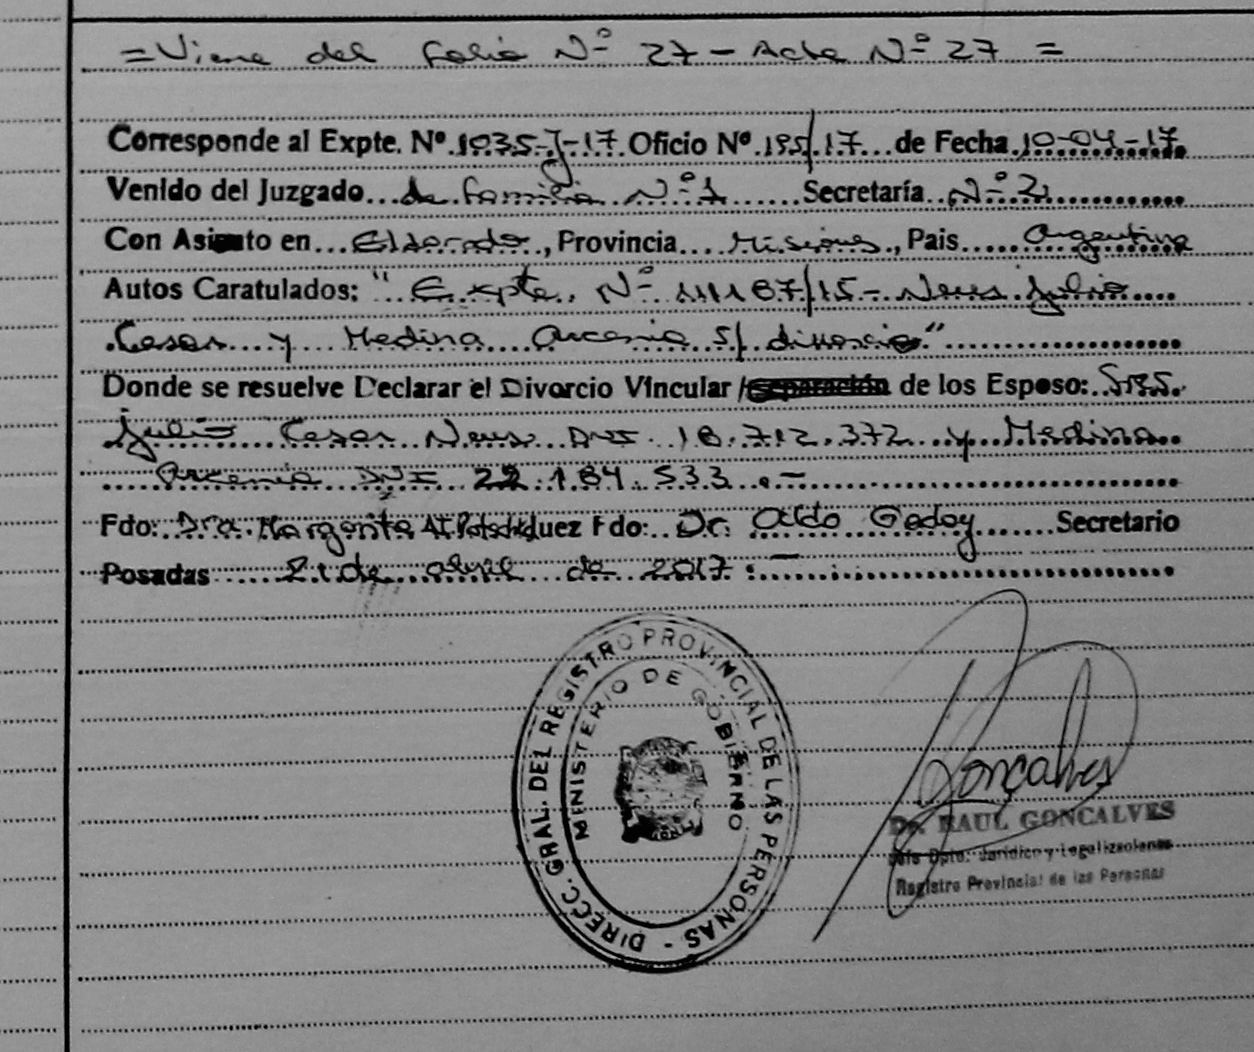 = Viene del folio Nº 27 - Acta Nº 27 =
Corresponde al Expte. Nº 1035-J-17 Oficio Nº 195/17 de Fecha 10-04-17
Venido del Juzgado de familia Nº 1 Secretaría Nº 2
Con Asiento en Eldorado, Provincia Misiones, Pais Argentina
Autos Caratulados: " Expte. Nº 111187/15 - Neus Julio
Cesar y Medina Arcenia S/ divorcio"
Donde se resuelve Declarar el Divorcio Vincular / separación de los Esposo: Sres.
Julio Cesar Neus DNI 18.712.372 y Medina
Arcenia DNI 22.184.533.-
Fdo: Dra. Margarita Fdo: Dr. Aldo Godoy Secretario
Posadas 21 de abril de 2017.-
DIRECC. GRAL. DEL REGISTRO PROVINCIAL DE LAS PERSONAS -
MINISTERIO DE GOBIERNO
Goncalves
Dr. RAUL GONCALVES
Jefe Dpto. Jurídico y Legalizaciones
Registro Provincial de las Personas